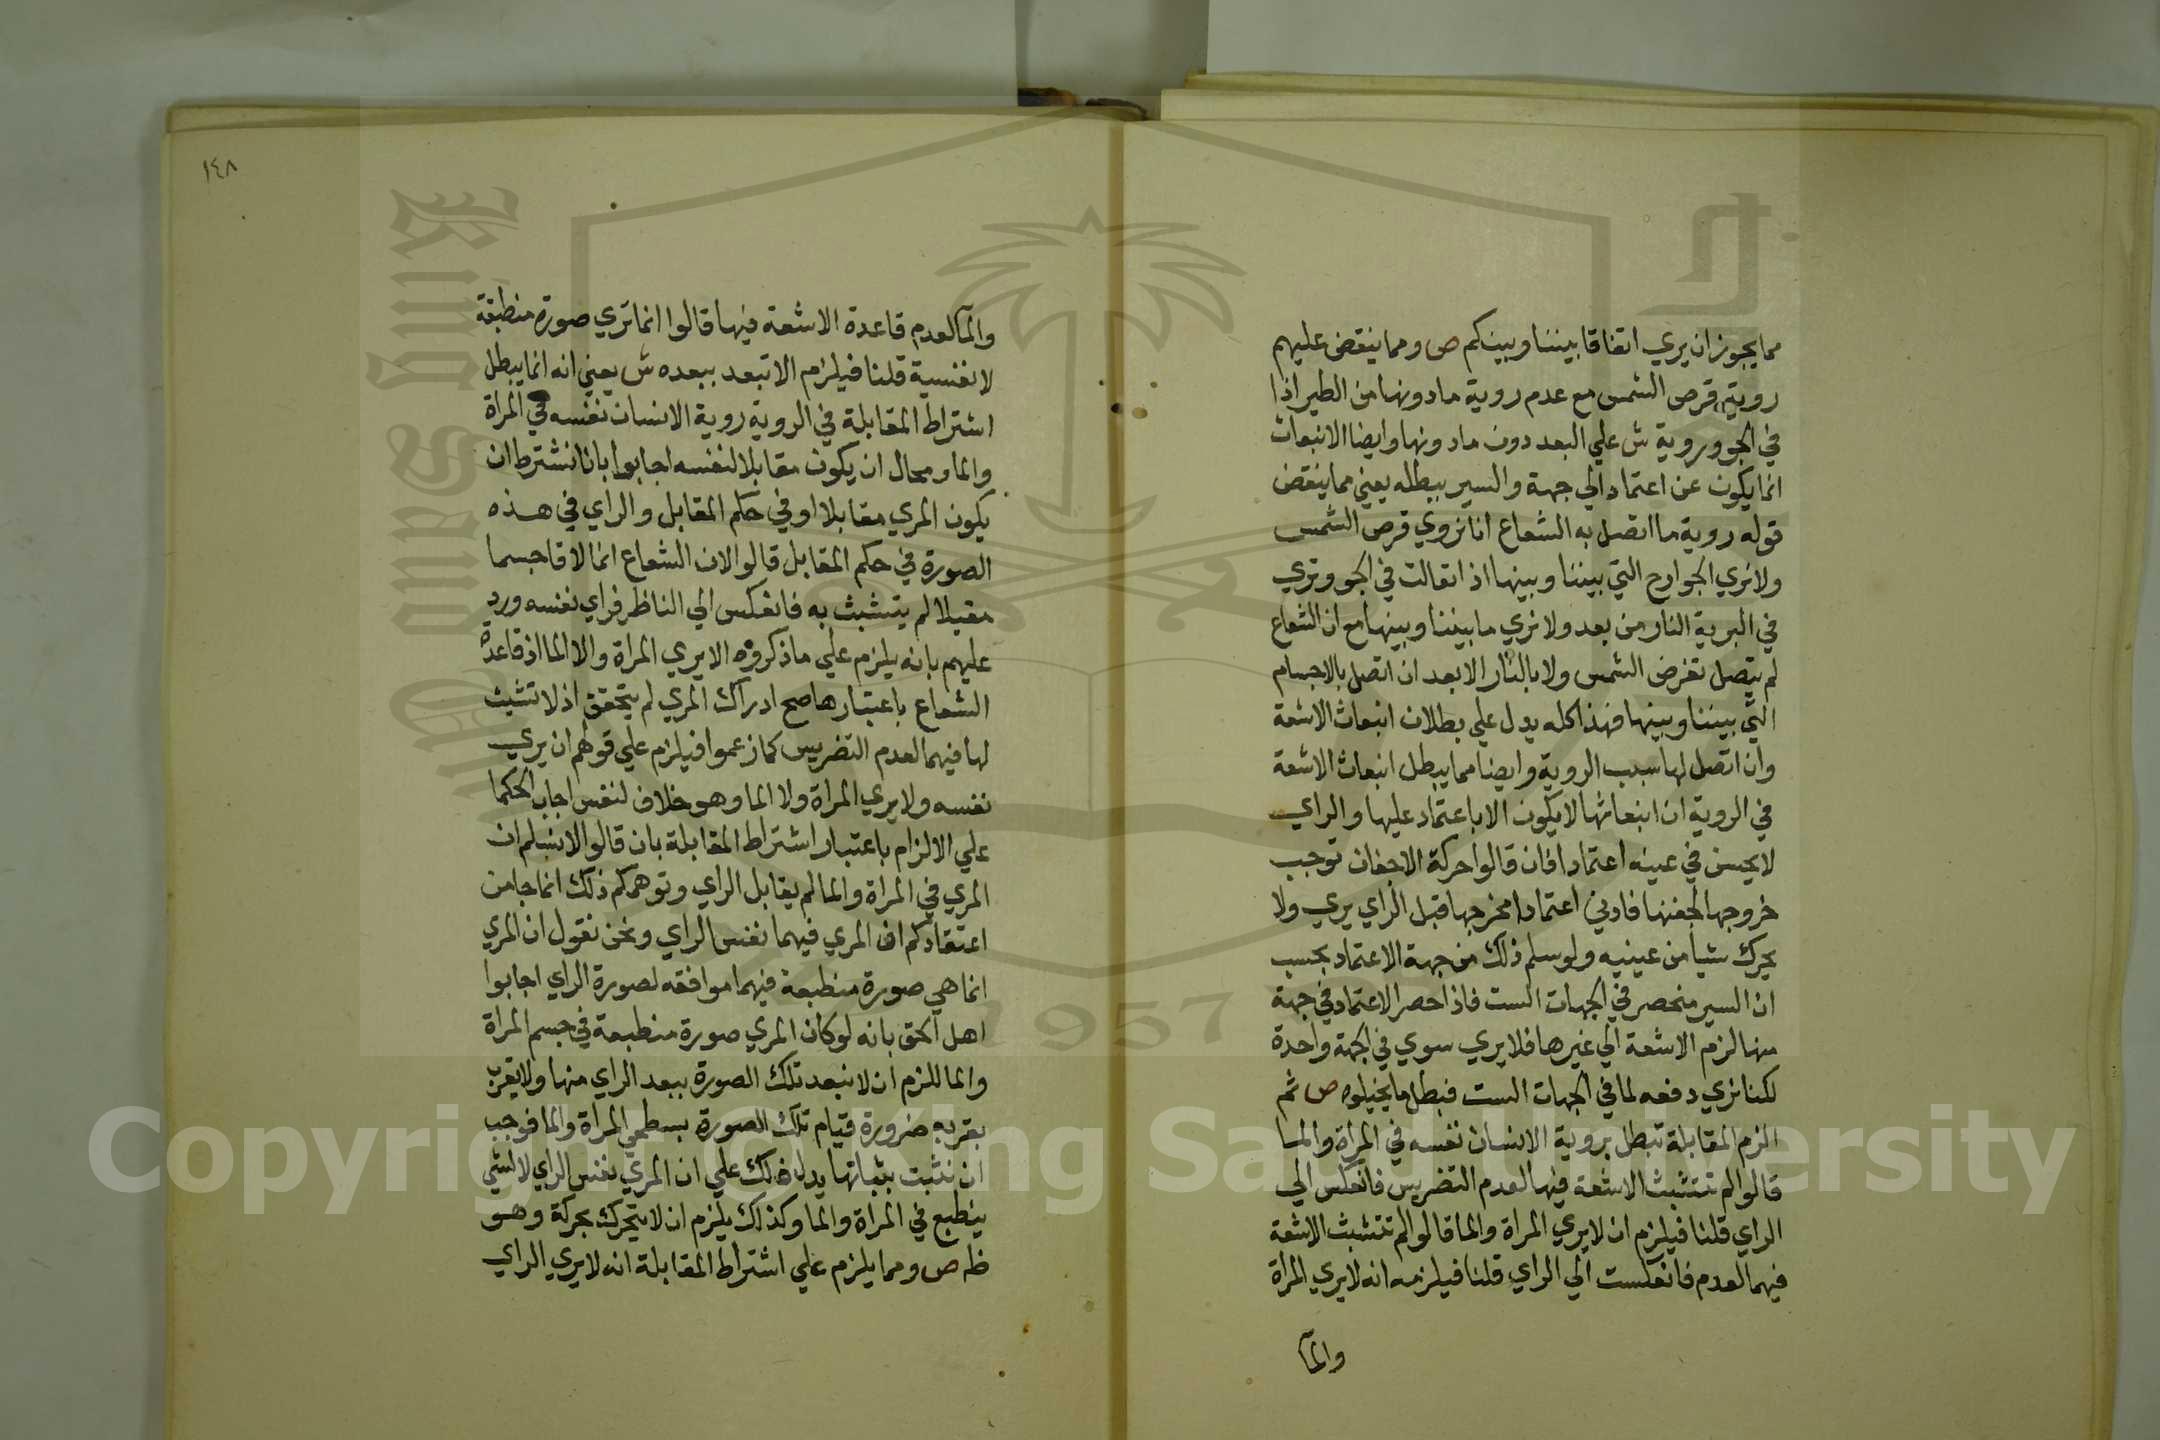 مما يجوز ان يري اتفاقا بيننا وبينكم ص ومما ينقض عليهم
روية قرص الشمس مع عدم روية ما دونها من الطير اذا
في الجو وروية ش علي البعد دون ما دونها وايضا الانبعاث
انما يكون عن اعتماد الي جهة والسير يبطله يعني مما ينقض
قوله روية ما اتصل به الشعاع انا نروي قرص الشمس
ولا نري الجوارح التي بيننا وبينها اذا تعالت في الجو ونري
في البرية النار من بعد ولا نري ما بيننا وبينها مع ان الشعاع
لم يتصل بقرض الشمس ولا بالنار الا بعد ان اتصل بالاجسام
التي بيننا وبينها فهذا كله يدل علي بطلان انبعاث الاشعة
وان اتصل لها سبب الروية وايضا مما يبطل انبعاث الاشعة
في الروية ان انبعاثها لا يكون الا باعتماد عليها والراي
لا يحس في عينه اعتمادا فان قالوا حركة الاجفان توجب
خروجها لجفنها فادني اعتمادا مخرجها قبل الراي يري ولا
يحرك شيا من عينيه ولو سلم ذلك من جهة الاعتماد بحسب
ان السير منحصر في الجهات الست فاذا حصر الاعتماد في جهة
منها لزم الاشعة الي غيرها فلا يري سوي في الجهة واحدة
لكنا نري دفعه لما في الجهات الست فبطل ما يخيلوه ص ثم
الزم المقابلة تبطل بروية الانسان نفسه في المراة والما
قالوا لم تتشبث الاشعة فيها لعدم التضريس فانعكس الي
الراي قلنا فيلزم ان لا يري المراة والما قالوا لم تتشبث الاشعة
فيهما لعدم فانعكست الي الراي قلنا فيلزمه انه لا يري المراة
والمآ
١٤٨
والمآ لعدم قاعدة الاشعة فيها قالوا انما تري صورة منطبقة
لا نفسية قلنا فيلزم الا تبعد ببعده ش يعني انه انما يبطل
اشتراط المقابلة في الروية روية الانسان نفسه في المراة
والما ومحال ان يكون مقابلا لنفسه اجابوا بانا نشترط ان
يكون المري مقابلا او في حكم المقابل والراي في هذه
الصورة في حكم المقابل قالوا لان الشعاع انما لاقا جسما
مقيلا لم يتشبث به فانعكس الي الناظر فراي نفسه ورد
عليهم بانه يلزم علي ما ذكروه الا يري المراة والا الما اذ قاعدة
الشعاع باعتبارها صح ادراك المري لم يتحقق اذ لا تشبث
لها فيهما لعدم التضريس كما زعموا فيلزم علي قولهم ان يري
نفسه ولا يري المراة ولا الما وهو خلاف لنفس اجاب الحكما
علي الالزام باعتبار اشتراط المقابلة بان قالوا لا نسلم ان
المري في المراة والما لم يقابل الراي وتوهمكم ذلك انما جا من
اعتقادكم ان المري فيهما نفس الراي ونحن نقول ان المري
انما هي صورة منطبعة فيهما موافقه لصورة الراي اجابوا
اهل الحق بانه لو كان المري صورة منطبعة في جسم المراة
والما للزم ان لا تبعد تلك الصورة ببعد الراي منها ولا يقرب
بقربه ضرورة قيام تلك الصورة بسطحي المراة والما فوجب
ان تثبت بثباتها يدل ذلك علي ان المري نفس الراي لا لشي
ينطبع في المراة والما وكذلك يلزم ان لا يتحرك بحركة وهو
ظه ص ومما يلزم علي اشتراط المقابلة انه لا يري الراي